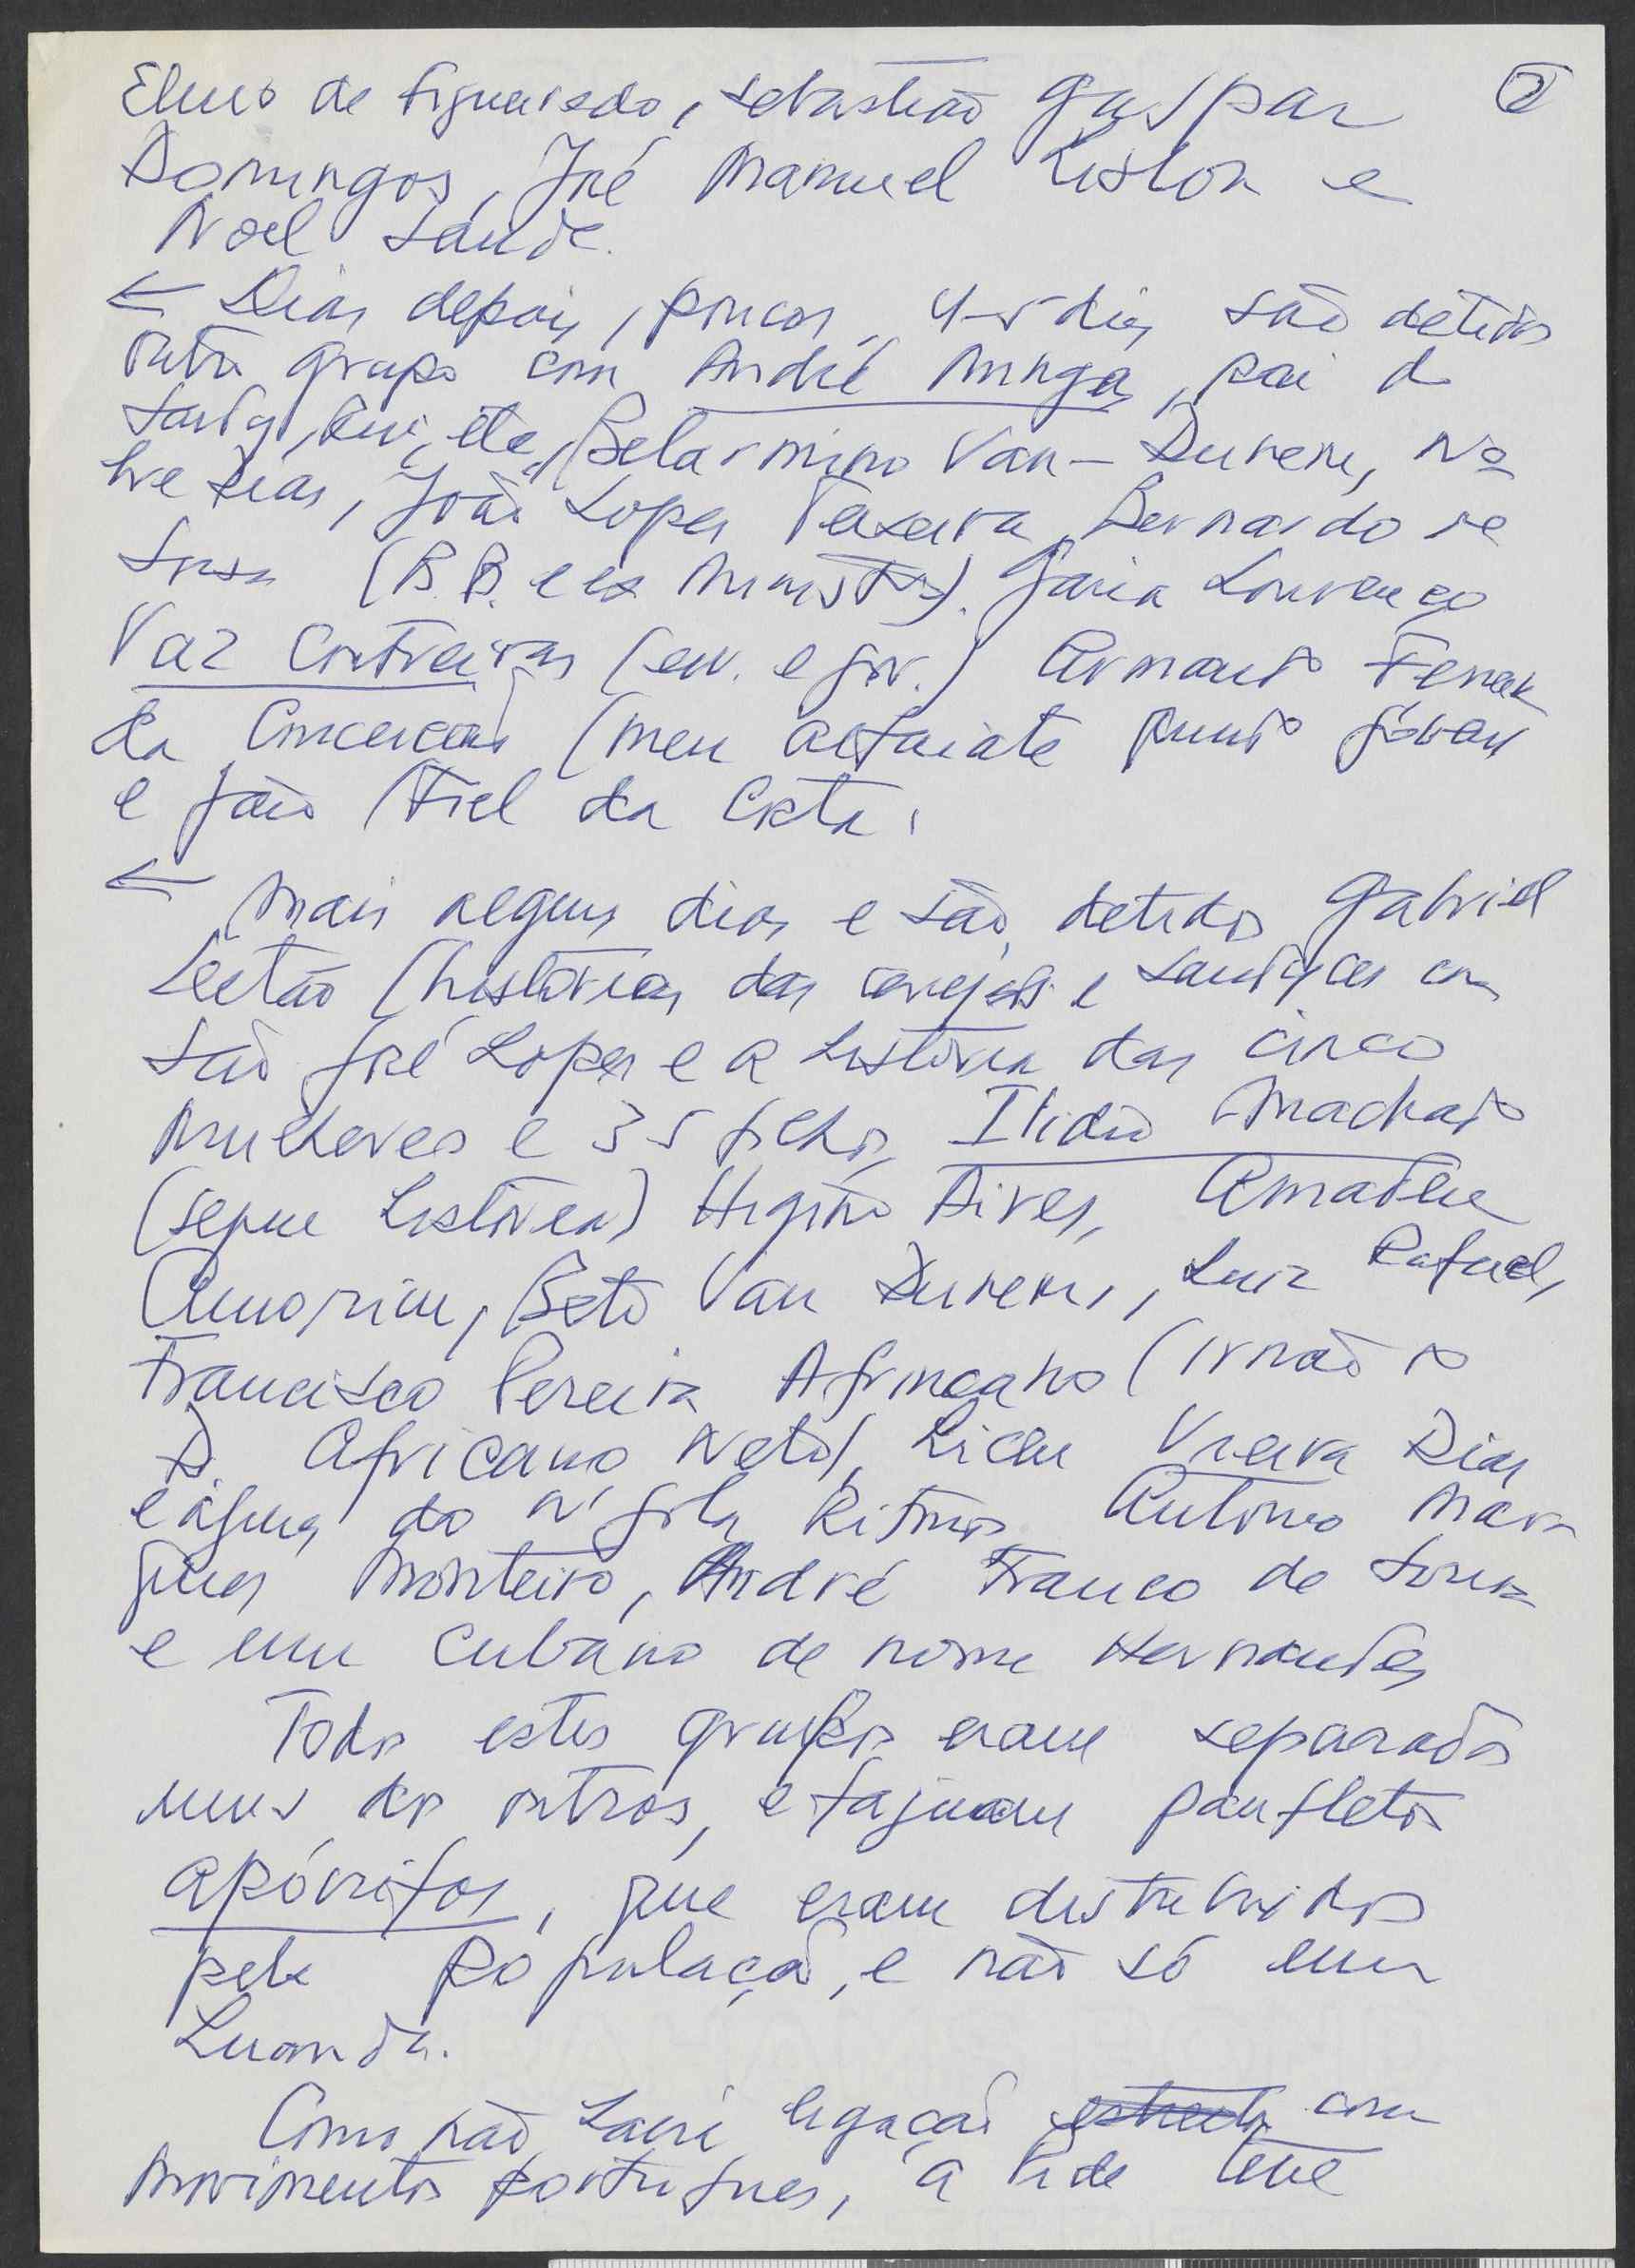 Elucio de Figueiredo, Sebastião Gaspar 2
Domingos, José Manuel Lisboa e
Noel Saúde.
← Dias depois, poucos, 4-5 dias são detidos
outro grupo com André Mingas, pai do
Rui, etc, Belarmino Van-Dunem, No
bre Dias, João Lopes Teixeira, Bernardo de
Sousa (B.B. e ex Ministro). Garcia Lourenço
Vaz Contreiras (enf. e gov.) Armando Ferreira
da Conceição (meu alfaiate quando jóvem
e João Fiel da Costa.
← Mais alguns dias e são detidos Gabriel
Leitão (histórias das cervejas e sandiches com
São José Lopes e a história das cinco
mulheres e 35 filhos, Ilidio Machado
(segue história) Higino Aires, Amadeu
Amorim, Beto Van Dunem, Luiz Rafael,
Francisco Pereira Africano (irmão do
D. Africano Neto), Liceu Vieira Dias
e alguns do N'gola Ritmos, António Mar
ques Monteiro, André Franco de Sousa
e um cubano de nome Hernandes
Todos estes grupos eram separados
uns dos outros, e fazíam panfletos
apócrifos, que eram distribuidos
pela população, e não só em
Luanda.
Como não havia ligação estreita com
movimentos portugues, a Pide teve